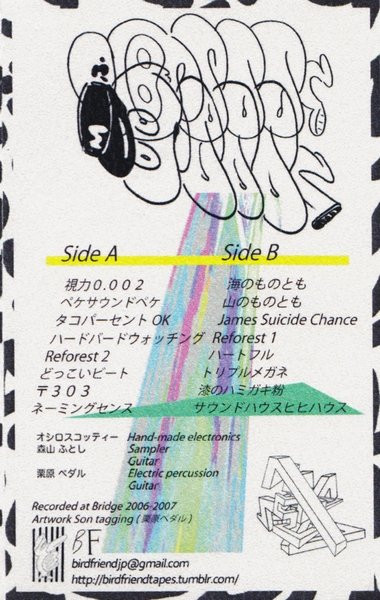 Side A
視力0.002
ペケサウンドペケ
タコパーセント OK
ハードバードウォッチング
Reforest 2
どっこいビート
〒303
ネーミングセンス
Side B
海のものとも
山のものとも
James Suicide Chance
Reforest 1
ハートフル
トリプルメガネ
漆のハミガキ粉
サウンドハウスヒヒハウス
オシロスコッティー Hand-made electronics
森山 ふとし Sampler
Guitar
栗原 ペダル Electric percussion
Guitar
Recorded at Bridge 2006-2007
Artwork Son tagging (栗原ペダル)
BF
birdfriendjp@gmail.com
http://birdfriendtapes.tumblr.com/